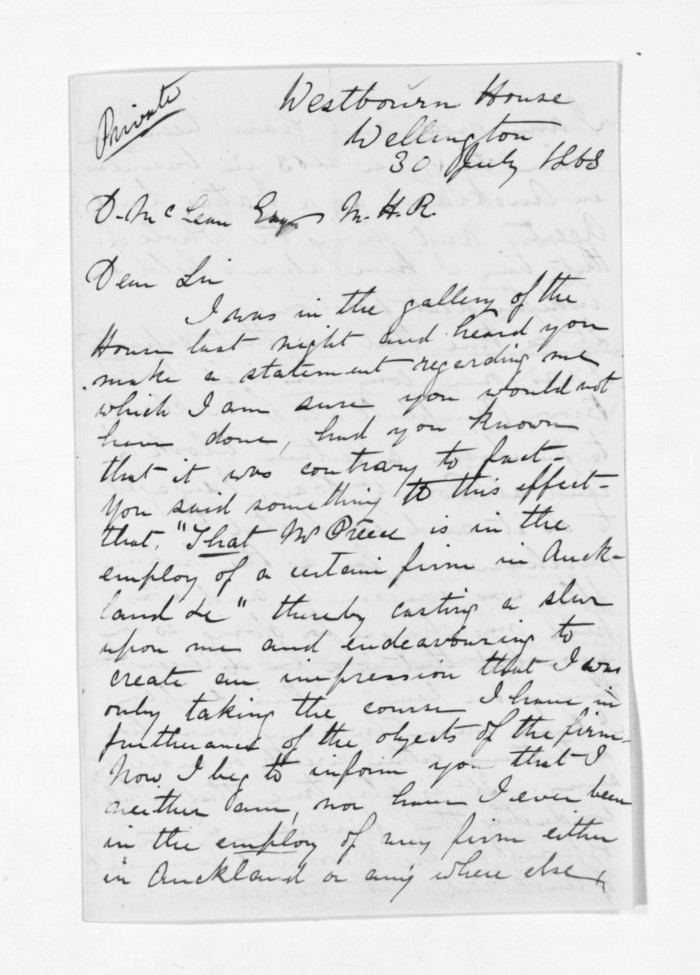 Private
Westbourn House
Wellington
30 July 1868
D. McLean Esqr M.H.R.
Dear Sir
I was in the gallery of the
House last night and heard you
make a statement regarding me
which I am sure you would not
have done, had you known
that it was contrary to fact-
You said something to this effect-
that. "That Mr Preece is in the
employ of a certain firm in Auck-
land &c" thereby casting a slur
upon me and endeavouring to
create an impression that I was
only taking the course I have in
furtherance of the objects of the firm-
Now I beg to inform you that I
neither am, nor have I ever been
in the employ of any firm either
in Auckland or any where else,